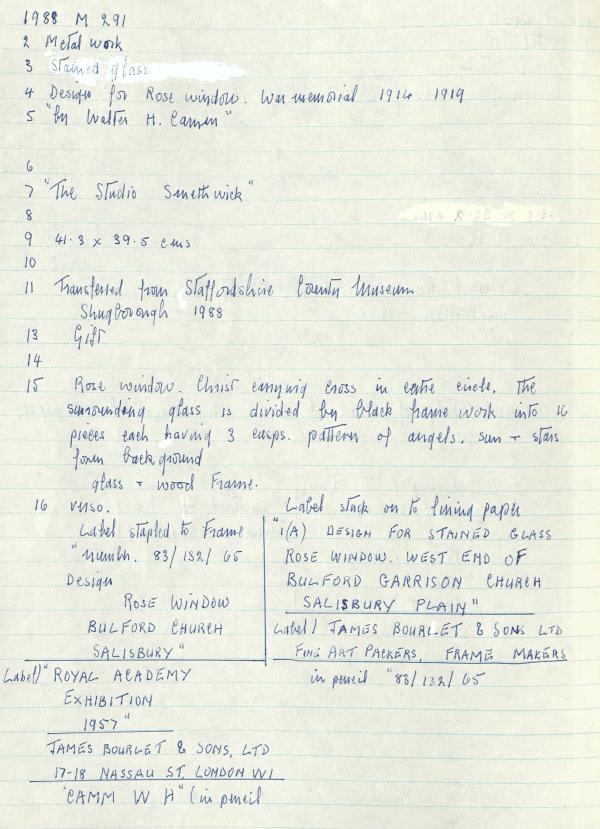 1988 M 291
2 Metal work
3 Stained glass
4 Design for Rose window. War memorial 1914 1919
5 "by Walter H. Camm"
6
7 "The Studio Smethwick"
8
9 41.3 x 39.5 cms
10
11 Transferred from Staffordshire County Museum
Shugborough 1988
13 Gift
14
15 Rose window. Christ carrying cross in centre circle. The
surrounding glass is divided by black frame work into 16
pieces each having 3 cusps. pattern of angels. sun + stars
form background
glass + wood Frame.
16 verso.
Label stapled to Frame
"number. 83/132/65
Design
ROSE WINDOW
BULFORD CHURCH
SALISBURY"
Label) "ROYAL ACADEMY
EXHIBITION
1957"
JAMES BOURLET & SONS, LTD
17-18 NASSAU ST. LONDON W1
"CAMM W H" (in pencil
Label stuck on to lining paper
"1(A) DESIGN FOR STAINED GLASS
ROSE WINDOW. WEST END OF
BULFORD GARRISON CHURCH
SALISBURY PLAIN"
Label) JAMES BOURLET & SONS LTD
FINE ART PACKERS, FRAME MAKERS
in pencil "83/132/65